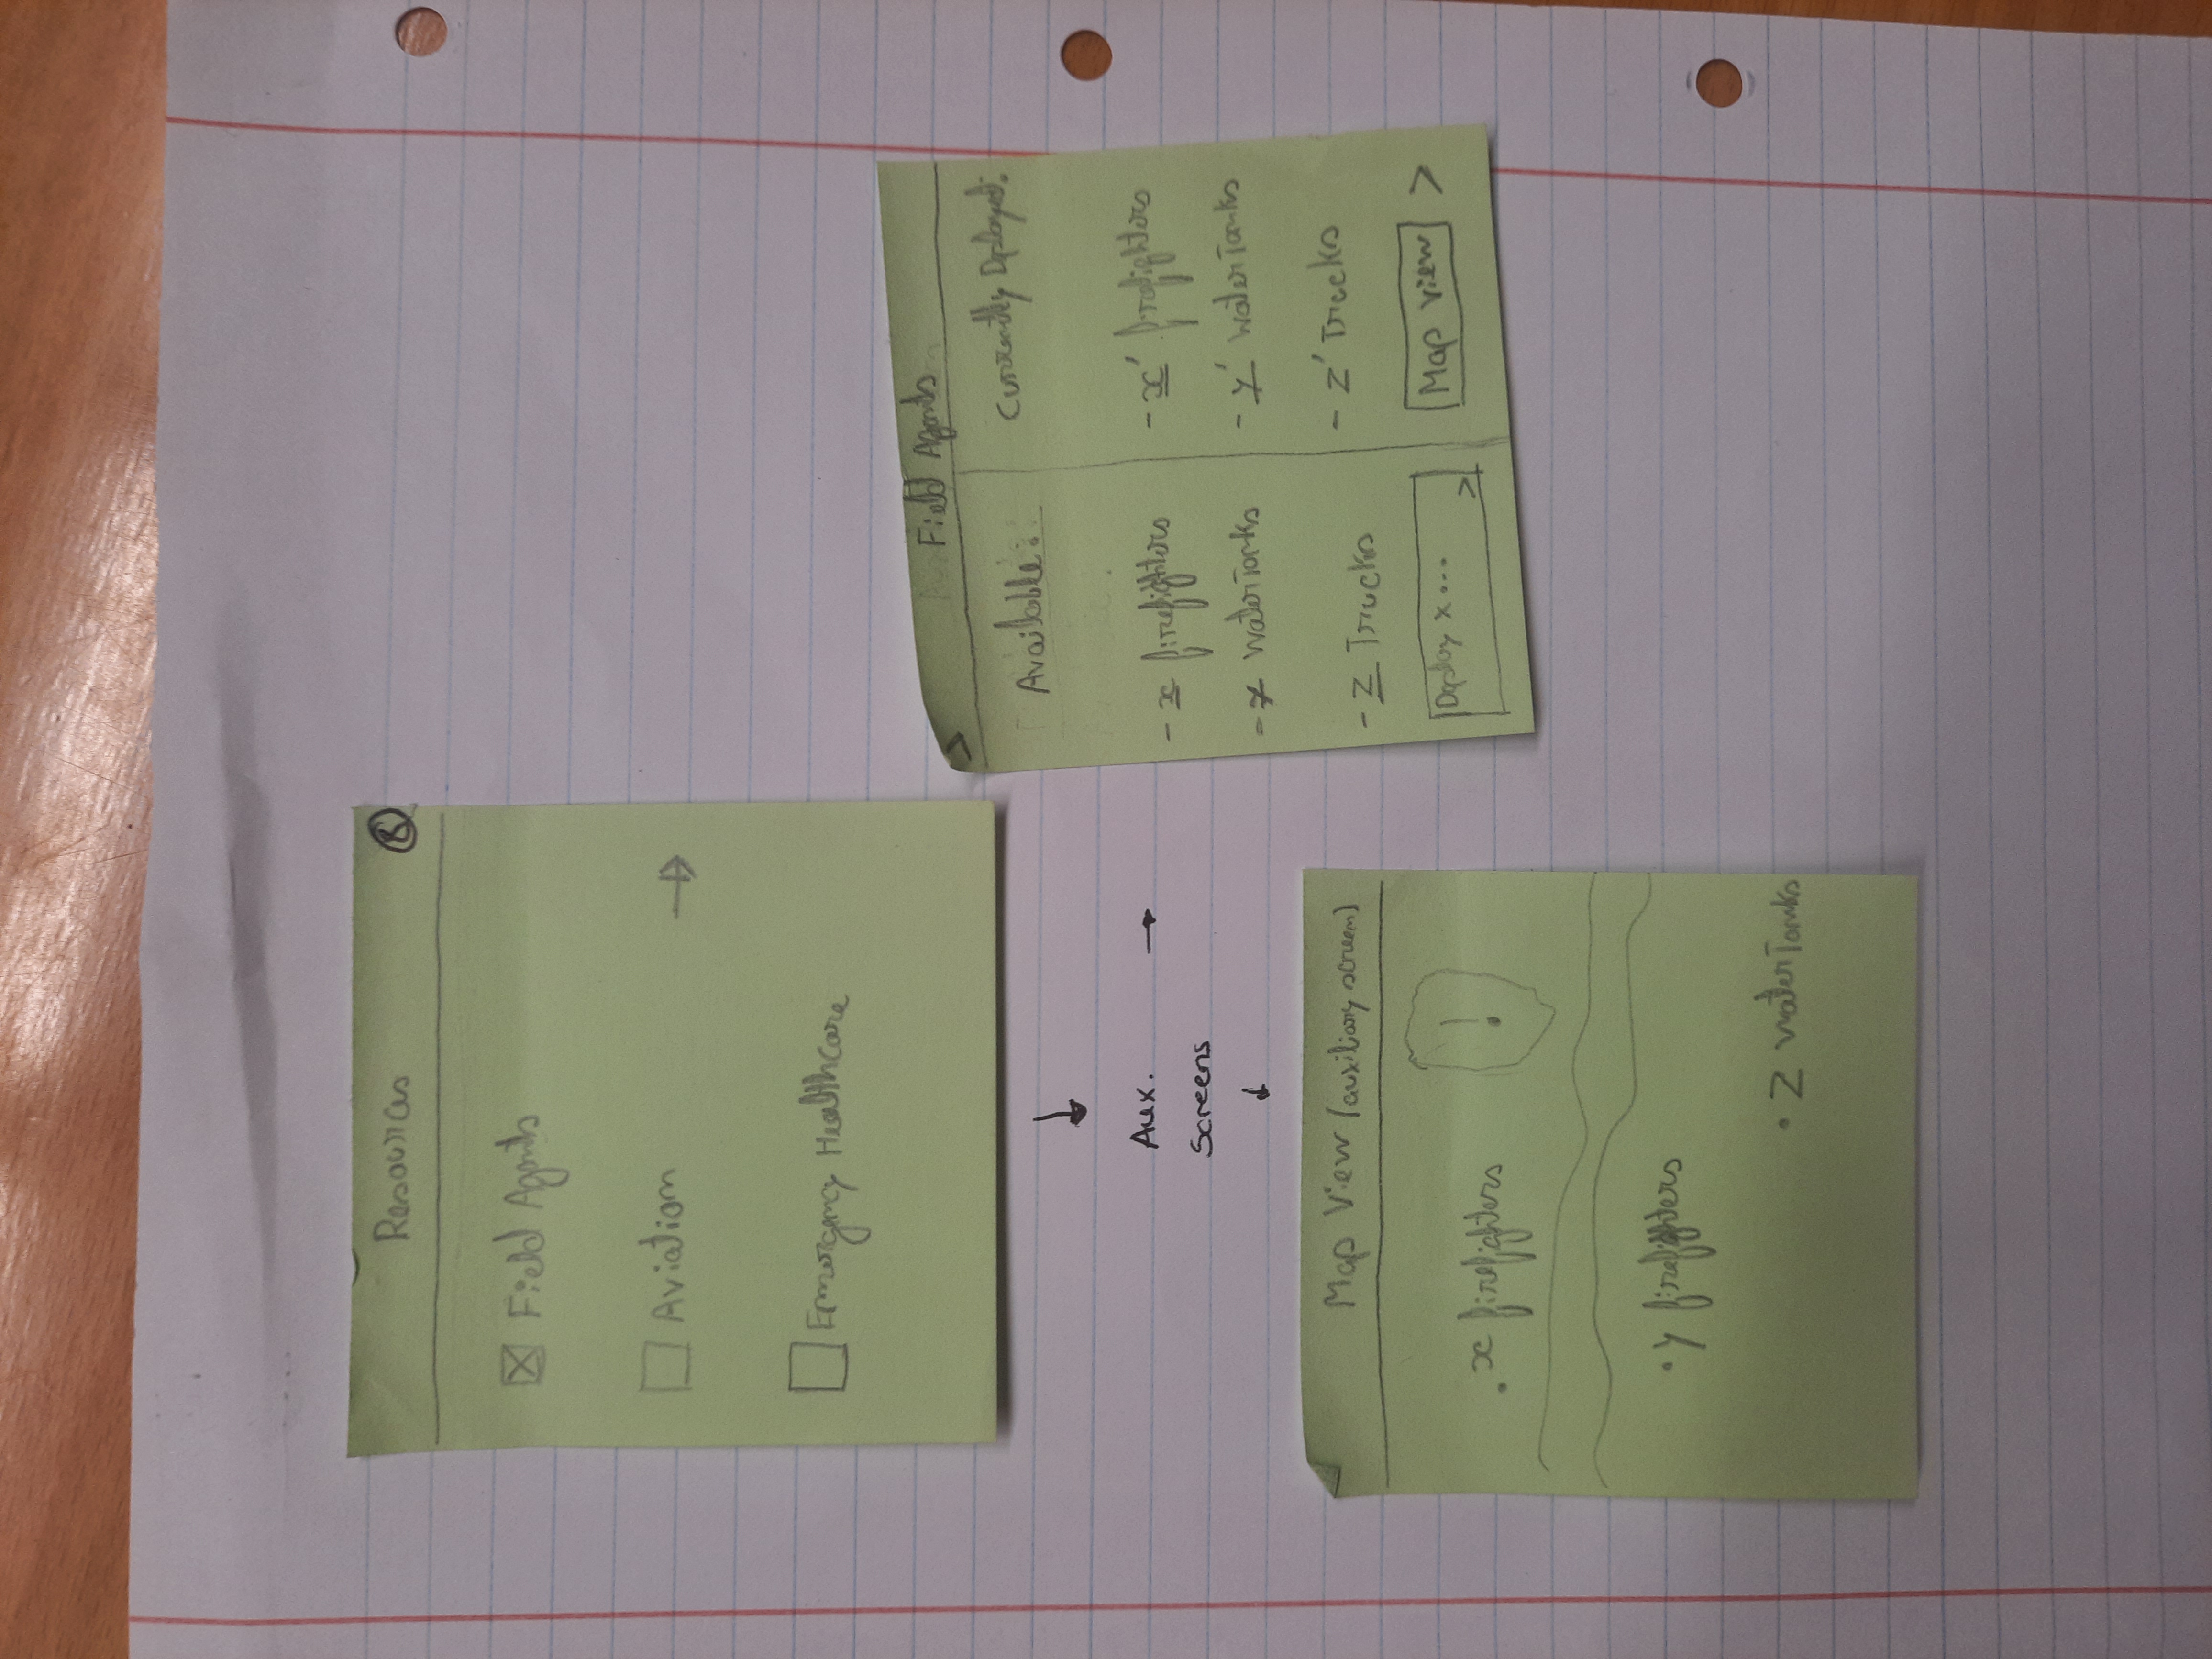 Resources
Field Agents
Aviation
Emergency Healthcare
Aux.
Screens
Field Agents
Available:
- x firefighters
- y waterTanks
- z Trucks
Deploy x...
>
Currently Deployed:
- x' firefighters
- y' waterTanks
- z' Trucks
Map view >
Map View (auxiliary screen)
. x firefighters
!
. y firefighters
. z waterTanks